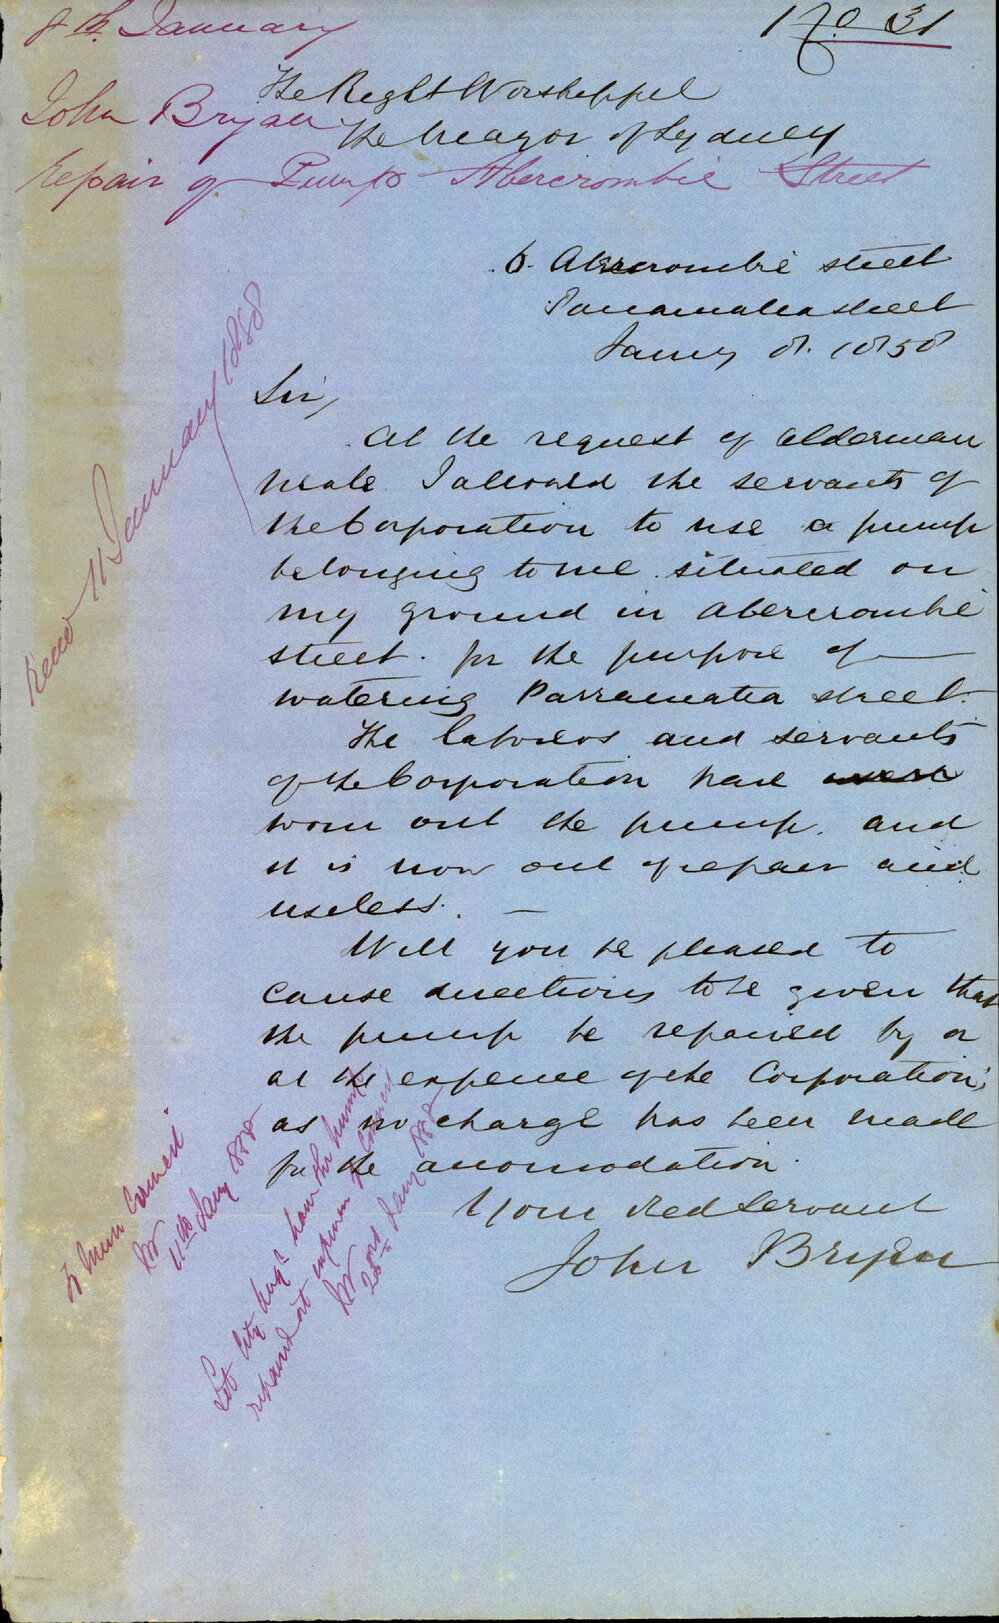 8th. January
No 31
John Bryan
repair of Pump Abercrombie Street
The Right Worsheppel
The Mayor of Sydney
6. Abercrombie street
Parramatta street
Jany 8. 1858
Sir,
At the request of Alderman
Neale I allowed the servants of
the Corporation to use a pump
belonging to me situated on
my ground in Abercrombie
street. for the purpose of
watering Parramatta street.
The laborers and servants
of the Corporation have
worn out the pump. and
it is now out of repair and
useless.
Will you be pleased to
cause directions to be given that
the pump be repaired by or
at the expence of the Corporation;
as no charge has been made
for the accomodation.
Your Obed Servant
John Bryan
Recd 11 January 1858
To Mun Council
11th Jany 1858
Let City have the Pump
repaired at expense of Council
Jany 1858